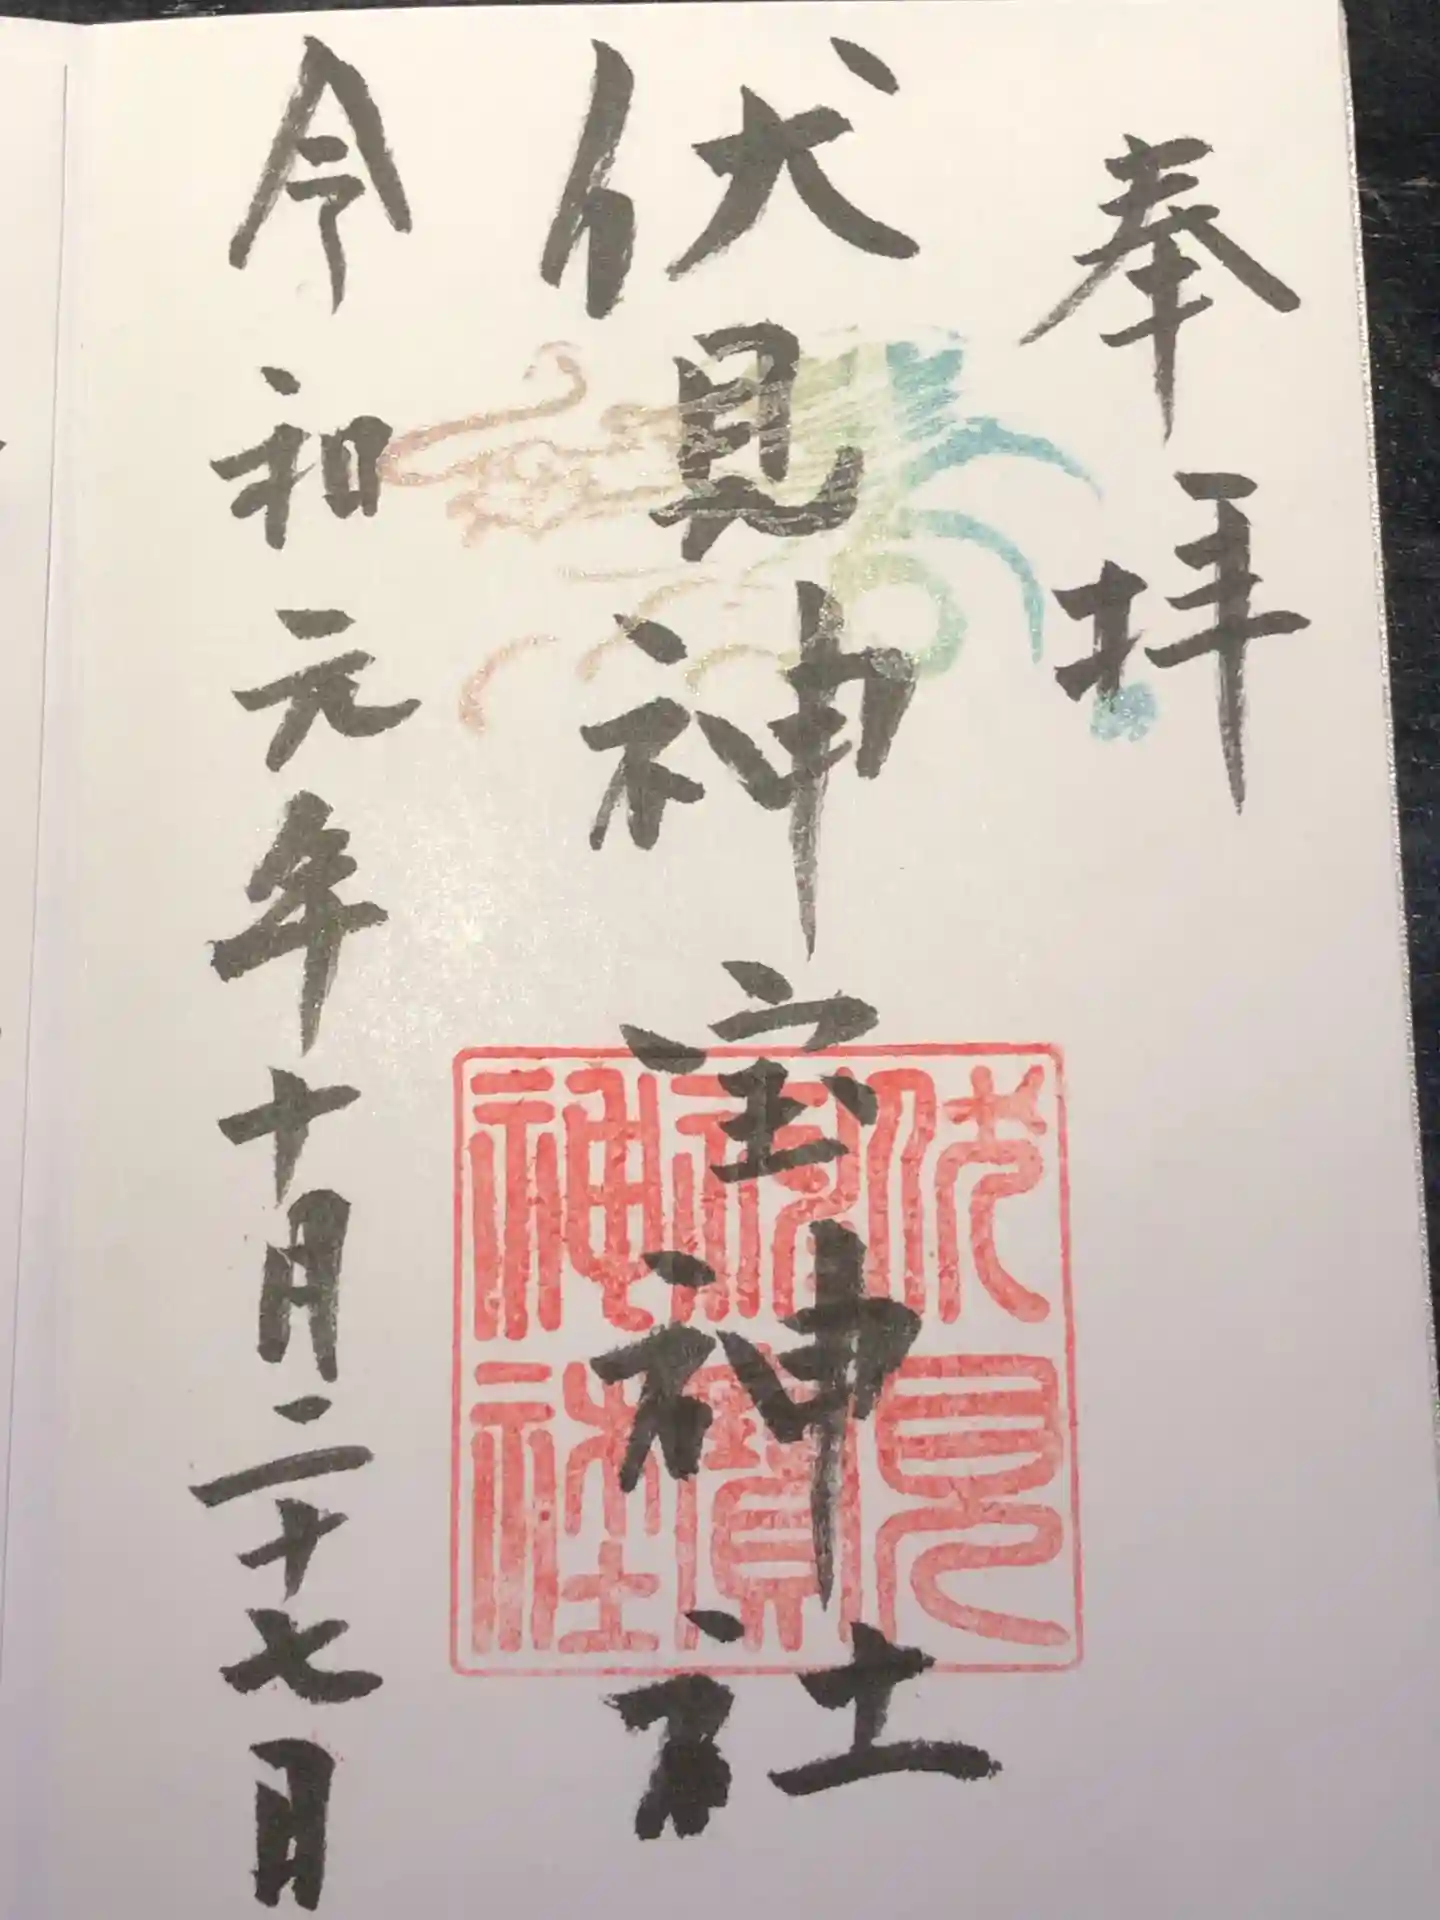 奉拝
伏見神宝神社
伏見
神寳
神社
令和元年十月二十七日